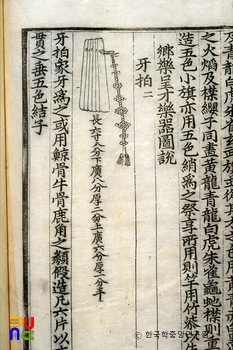 之火焰及襟纓、千同畫黃龍青龍白虎朱雀龜虵襟則重
造五色小旗亦用五色綃爲之祭享兩用則竿用竹漆
鄕樂呈才樂器圖說
牙拍二
長六寸八分下廣八分厚二分上廣六分厚一分半
牙拍象牙爲之或用鯨骨牛骨鹿角之類假造凡六片以
貫之垂五色結子
한국학중앙연구원